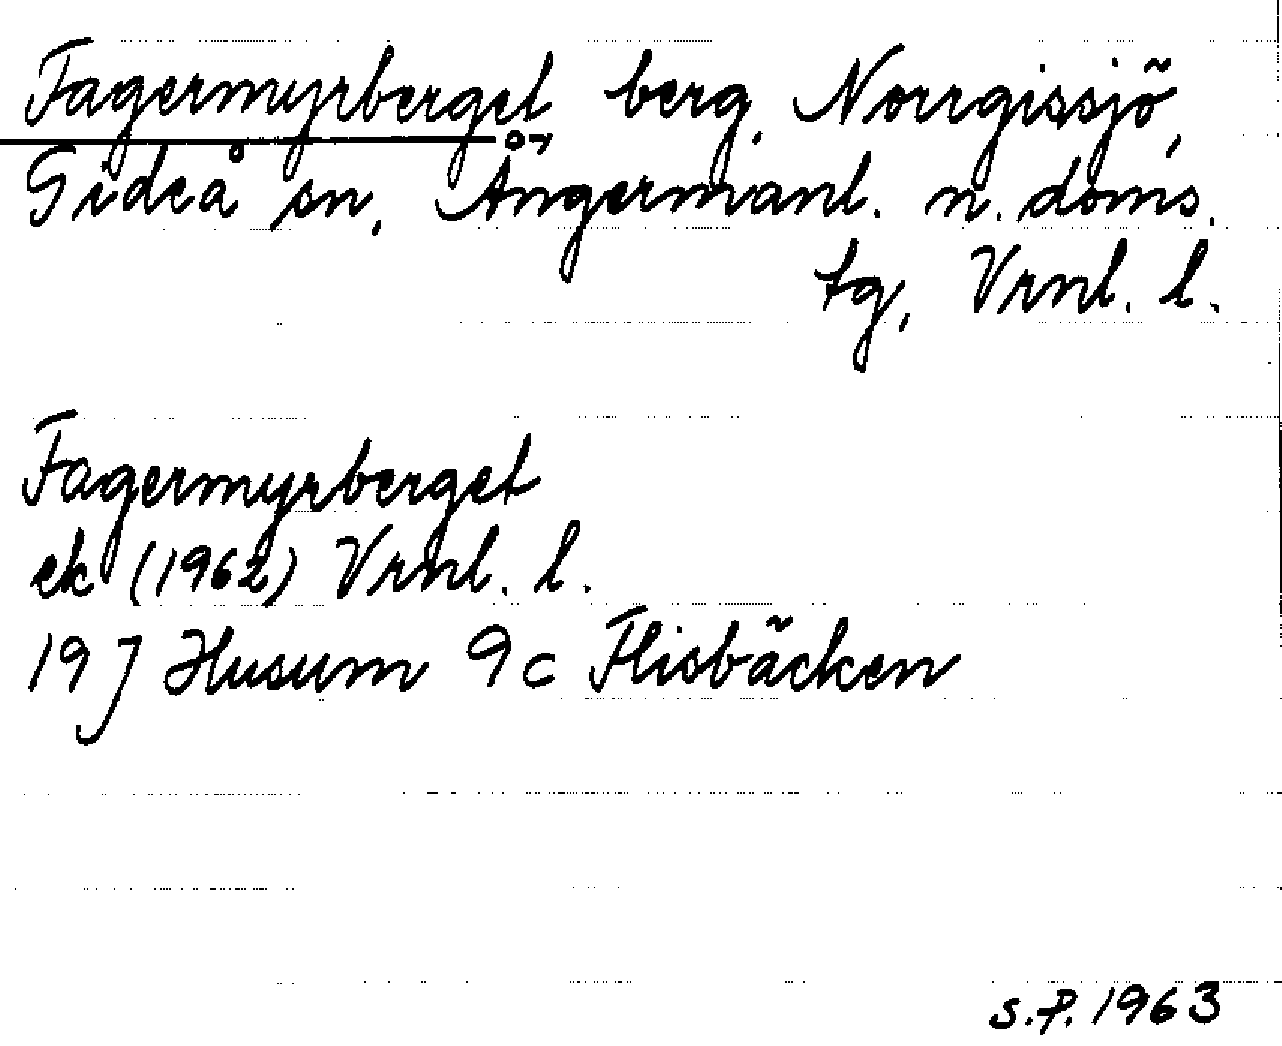 Fagermyrberget berg. Norrgissjö,
Gideå sn, Ångermanl. n. doms.
tg, Vrnl. l.
Fagermyrberget
ek (1962) Vrnl. l.
19 J Husum 9c Flisbäcken
S.P. 1963